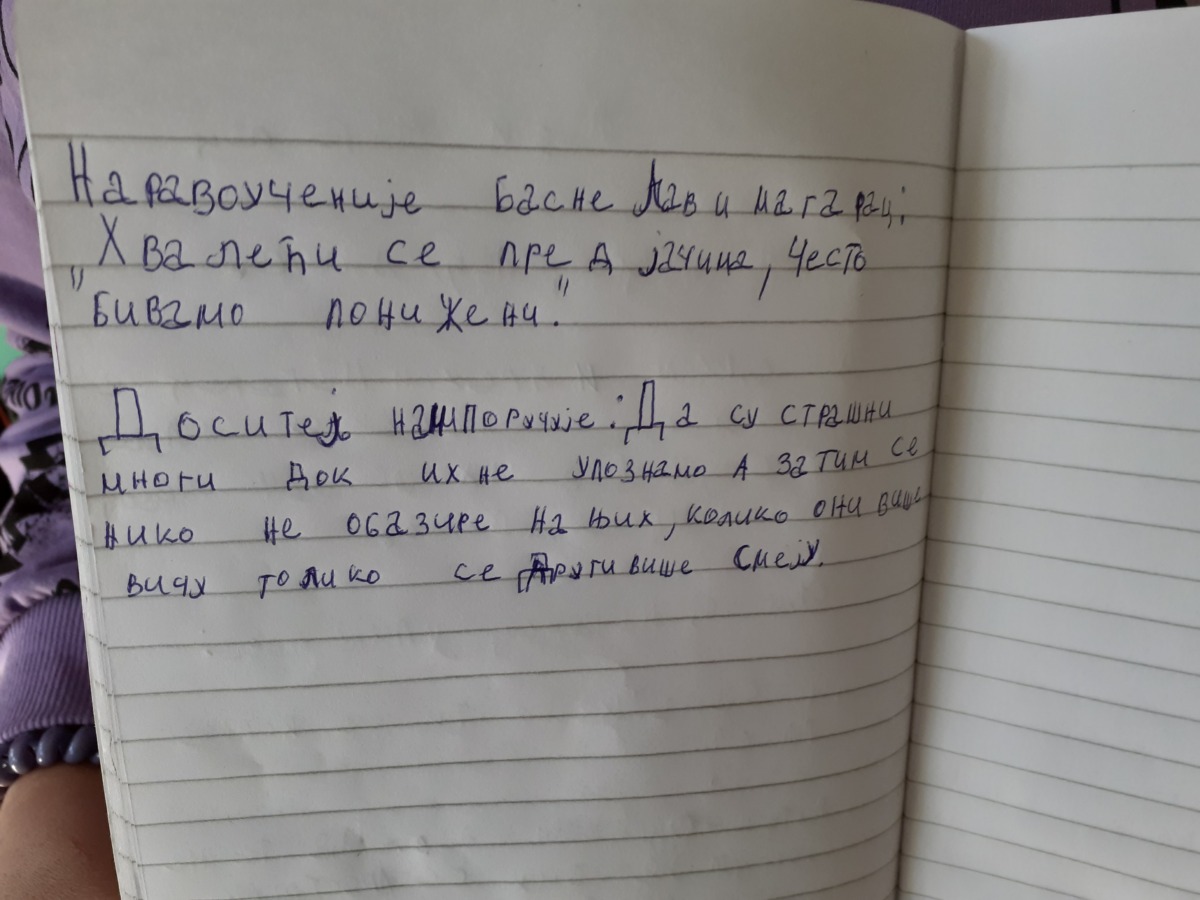 Наравоученије басне Лав и магарац:
„Хвалећи се пред јачица, често
бивамо понижени."
Доситеј нам поручује: Да су страшни
многи док их не упознамо а затим се
нико не обазире на њих, колико они више
вичу толико се други више смеју.